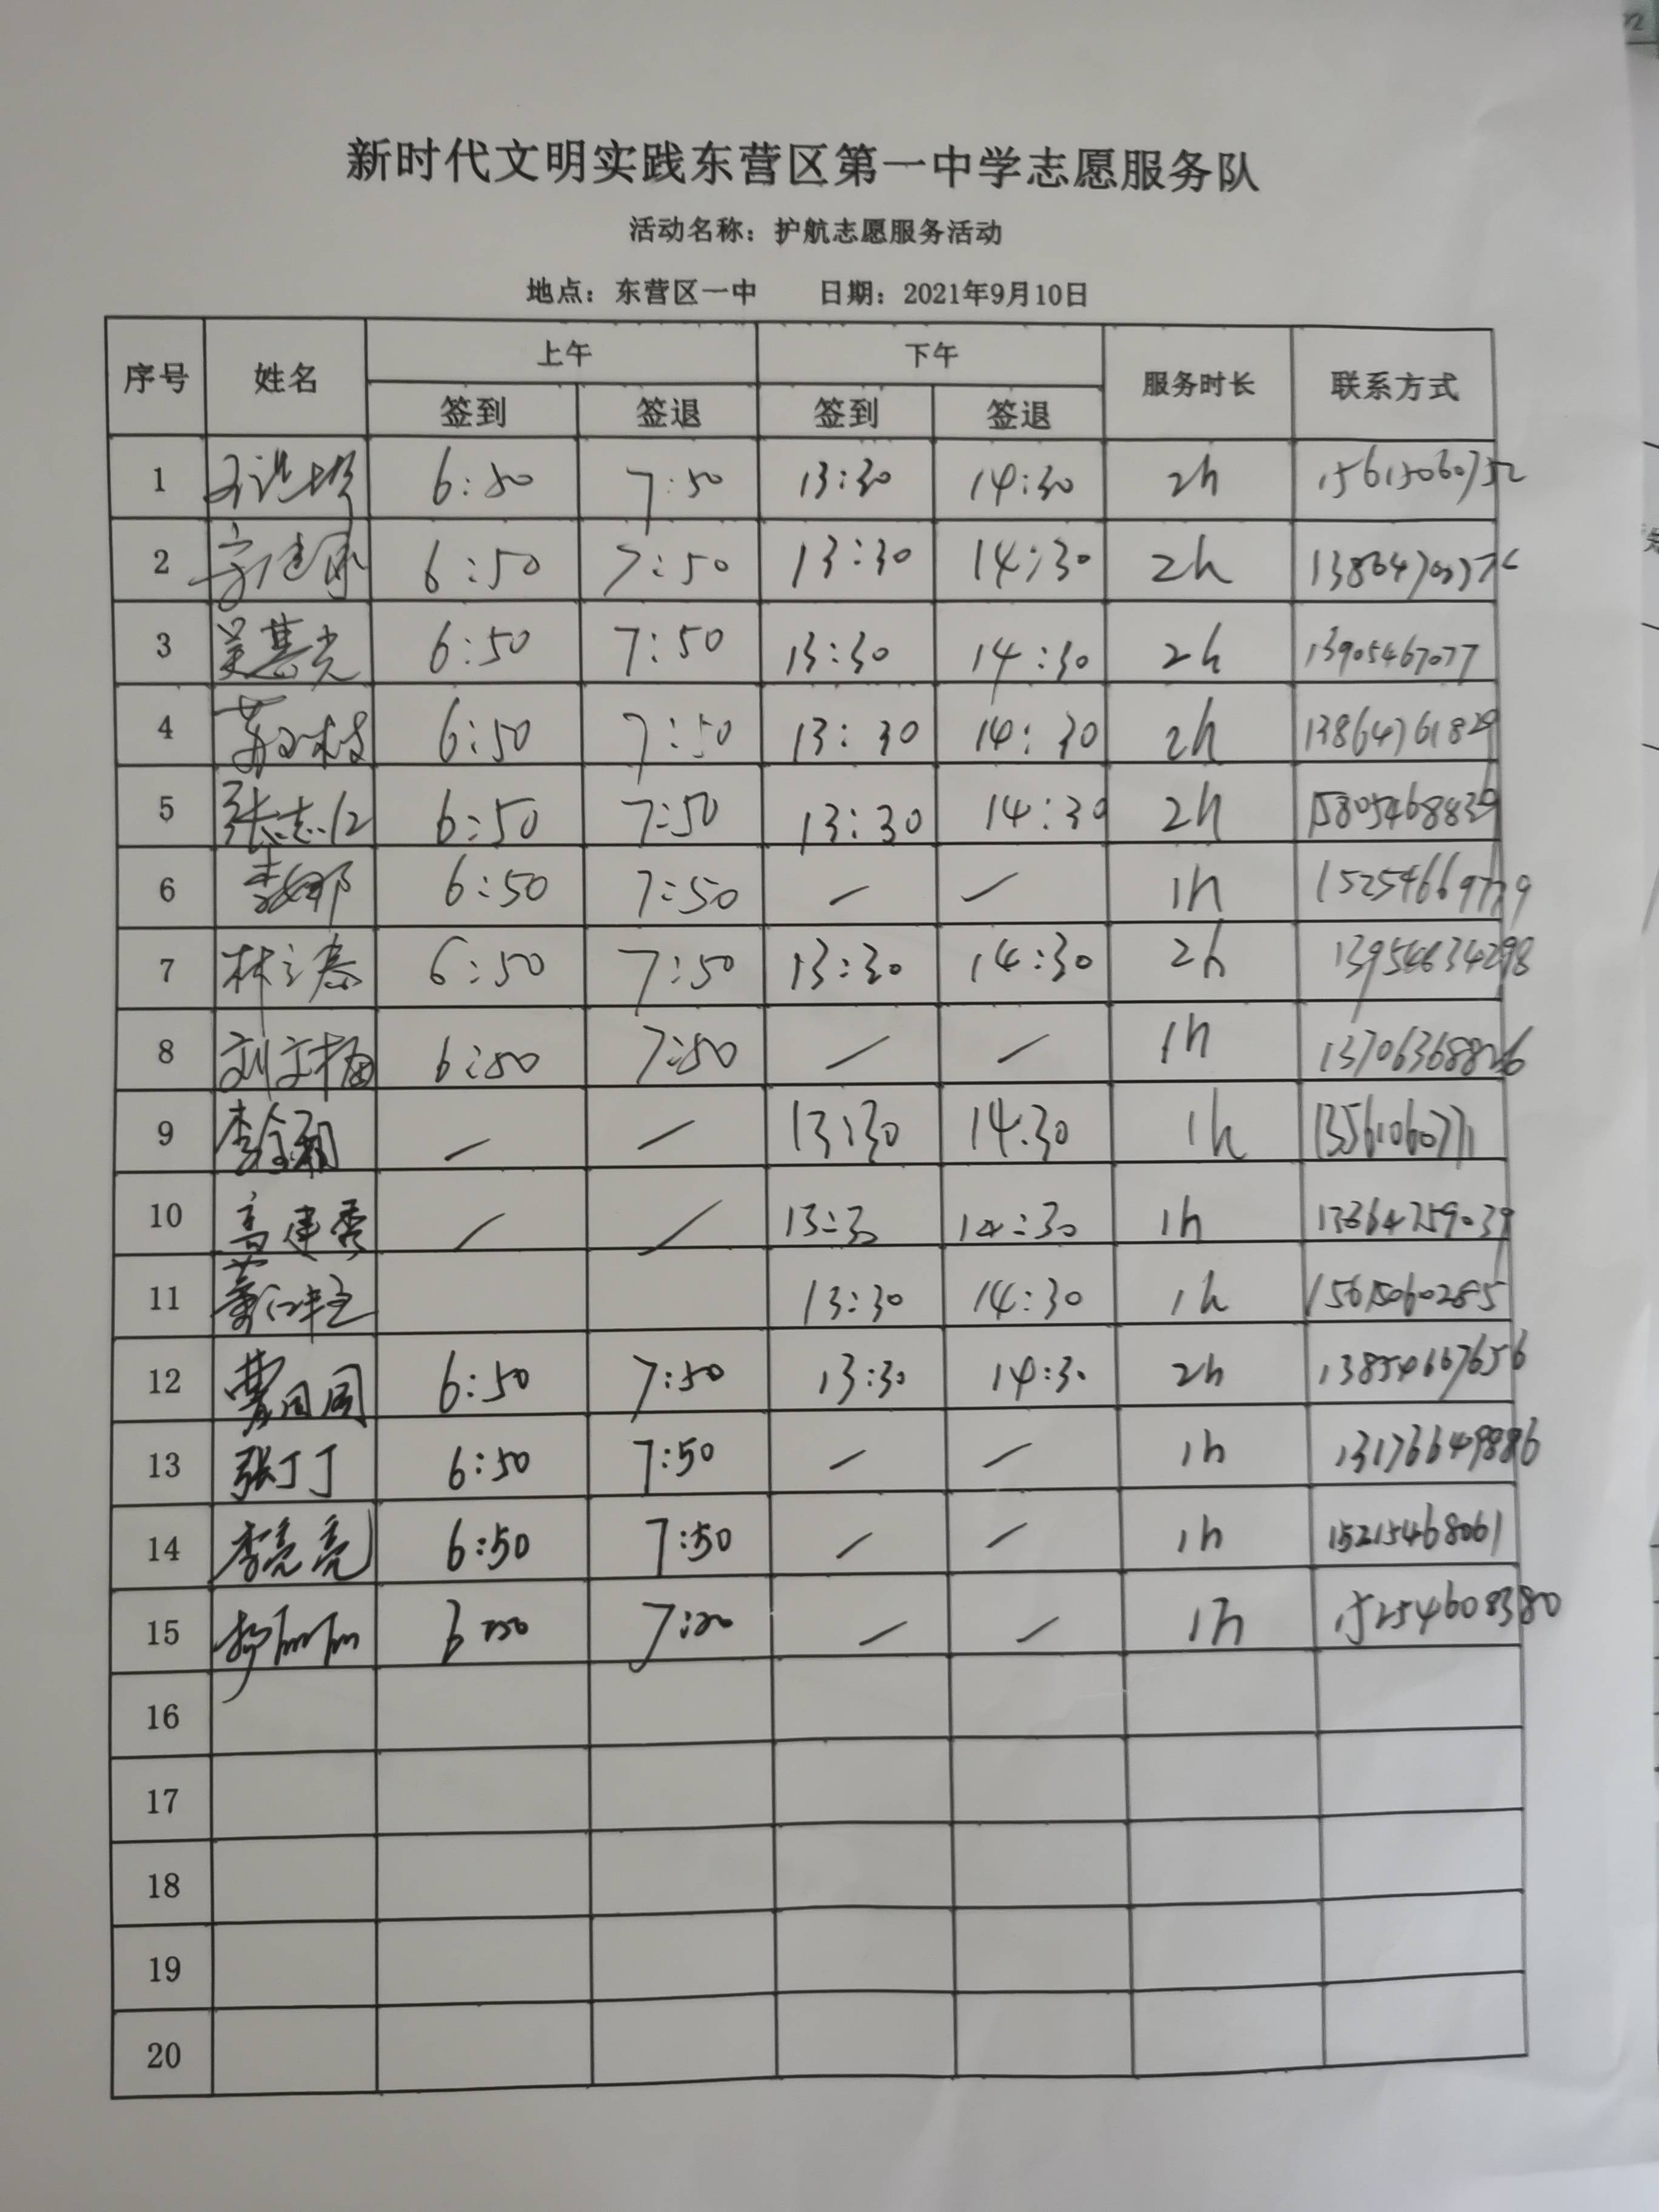 新时代文明实践东营区第一中学志愿服务队
活动名称：护航志愿服务活动
地点：东营区一中 日期：2021年9月10日
序号 姓名 上午 下午 服务时长 联系方式
签到 签退 签到 签退
1 6:50 7:50 13:30 14:30 2h 15615060752
2 6:50 7:50 13:30 14:30 2h
3 6:50 7:50 13:30 14:30 2h 13905467077
4 6:50 7:50 13:30 14:30 2h 13864761829
5 张志仁 6:50 7:50 13:30 14:30 2h 15805468839
6 李娜 6:50 7:50 — — 1h 15254669779
7 林之春 6:50 7:50 13:30 14:30 2h 13954634298
8 刘文梅 6:50 7:50 — — 1h 13706368826
9 — — 13:30 14:30 1h 13561060771
10 高建秀 — — 13:30 14:30 1h 13864759039
11 13:30 14:30 1h 15615060285
12 曹圆圆 6:50 7:50 13:30 14:30 2h 13854667656
13 张丁丁 6:50 7:50 — — 1h 13176649886
14 李亮亮 6:50 7:50 — — 1h 15215468061
15 杨丽丽 6:50 7:50 — — 1h 15254608380
16
17
18
19
20